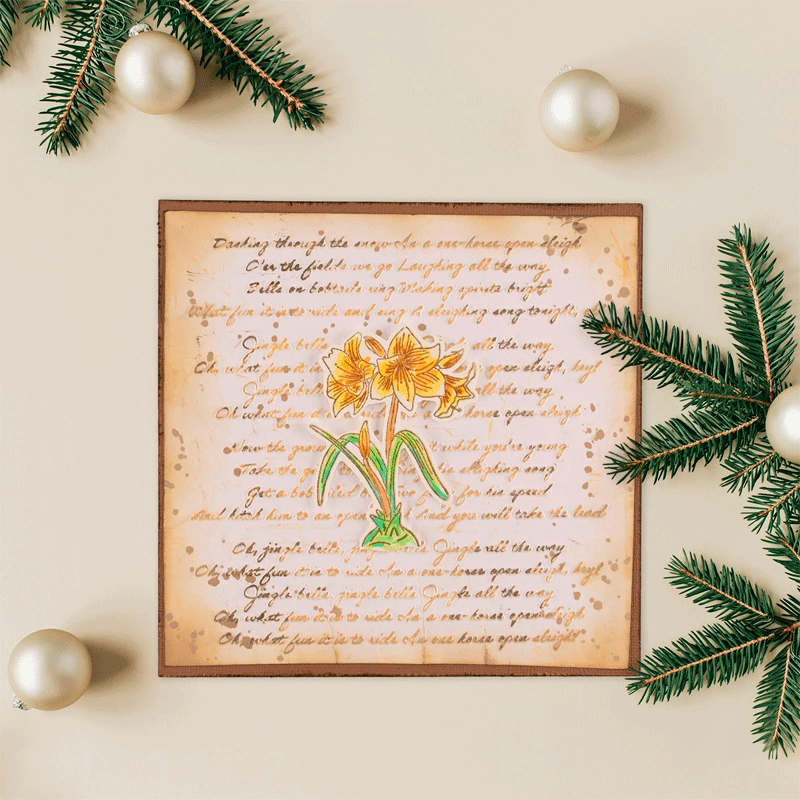 Dashing through the snow In a one-horse open sleigh
O'er the fields we go Laughing all the way
Bells on bobtails ring Making spirits bright
What fun it is to ride and sing A sleighing song tonight,
Jingle bells all the way.
Oh, what fun it is in open sleigh, hey!
Jingle bells all the way.
Oh what fun it is to ride horse open sleigh
Now the grou it while you're young
Take the gi this sleighing song
Get a bob for his speed
And hitch him to an open And you will take the lead
Oh, jingle bells, jingle Jingle all the way
Oh, what fun it is to ride In a one-horse open sleigh, hey!
Jingle bells, jingle bells Jingle all the way
Oh, what fun it is to ride In a one-horse open sleigh
Oh, what fun it is to ride In one horse open sleigh